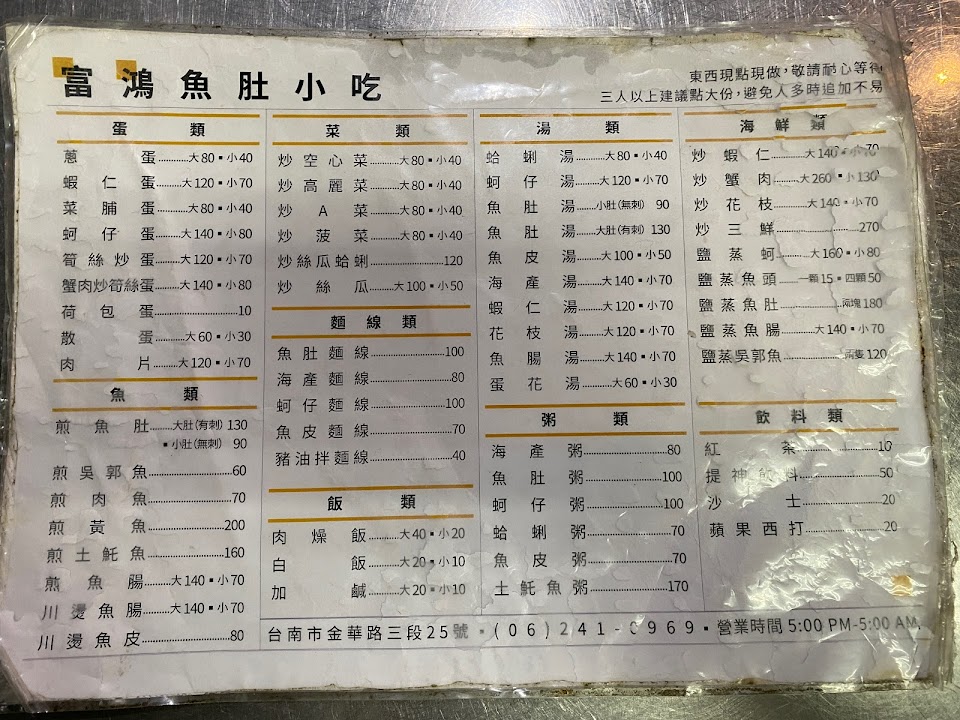 富鴻魚肚小吃
東西現點現做，敬請耐心等待
三人以上建議點大份，避免人多時追加不易
蛋類
蔥蛋..........大80▪小40
蝦仁蛋..........大120▪小70
菜脯蛋..........大80▪小40
蚵仔蛋..........大140▪小80
筍絲炒蛋..........大120▪小70
蟹肉炒筍絲蛋..........大140▪小80
荷包蛋..........10
散蛋..........大60▪小30
肉片..........大120▪小70
魚類
煎魚肚..........大肚(有刺) 130
▪小肚(無刺) 90
煎吳郭魚..........60
煎肉魚..........70
煎黃魚..........200
煎土魠魚..........160
煎魚腸..........大140▪小70
川燙魚腸..........大140▪小70
川燙魚皮..........80
菜類
炒空心菜..........大80▪小40
炒高麗菜..........大80▪小40
炒A菜..........大80▪小40
炒菠菜..........大80▪小40
炒絲瓜蛤蜊..........120
炒絲瓜..........大100▪小50
麵線類
魚肚麵線..........100
海產麵線..........80
蚵仔麵線..........100
魚皮麵線..........70
豬油拌麵線..........40
飯類
肉燥飯..........大40▪小20
白飯..........大20▪小10
加鹹..........大20▪小10
湯類
蛤蜊湯..........大80▪小40
蚵仔湯..........大120▪小70
魚肚湯..........小肚(無刺) 90
魚肚湯..........大肚(有刺) 130
魚皮湯..........大100▪小50
海產湯..........大140▪小70
蝦仁湯..........大120▪小70
花枝湯..........大120▪小70
魚腸湯..........大140▪小70
蛋花湯..........大60▪小30
粥類
海產粥..........80
魚肚粥..........100
蚵仔粥..........100
蛤蜊粥..........70
魚皮粥..........70
土魠魚粥..........170
海鮮類
炒蝦仁..........大140▪小70
炒蟹肉..........大260▪小130
炒花枝..........大140▪小70
炒三鮮..........270
鹽蒸蚵..........大160▪小80
鹽蒸魚頭..........一顆15▪四顆50
鹽蒸魚肚..........兩塊180
鹽蒸魚腸..........大140▪小70
鹽蒸吳郭魚..........兩隻120
飲料類
紅茶..........10
提神飲料..........50
沙士..........20
蘋果西打..........20
台南市金華路三段25號▪(06)241-0969▪營業時間 5:00 PM-5:00 AM